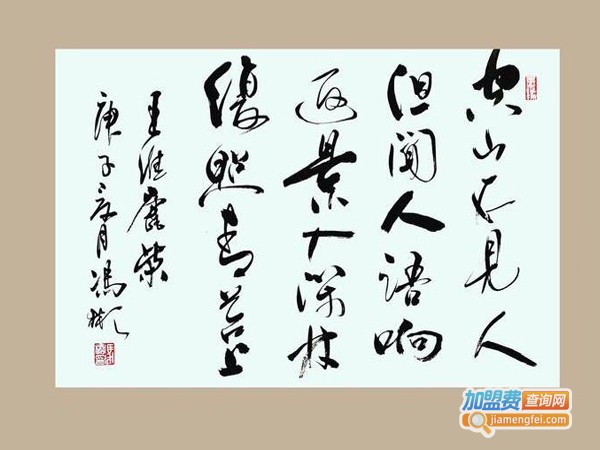 空山不見人
但聞人語响
返景入深林
復照青苔上
王維鹿柴
庚子月馮彬
加盟费查询网
jiamengfei.com